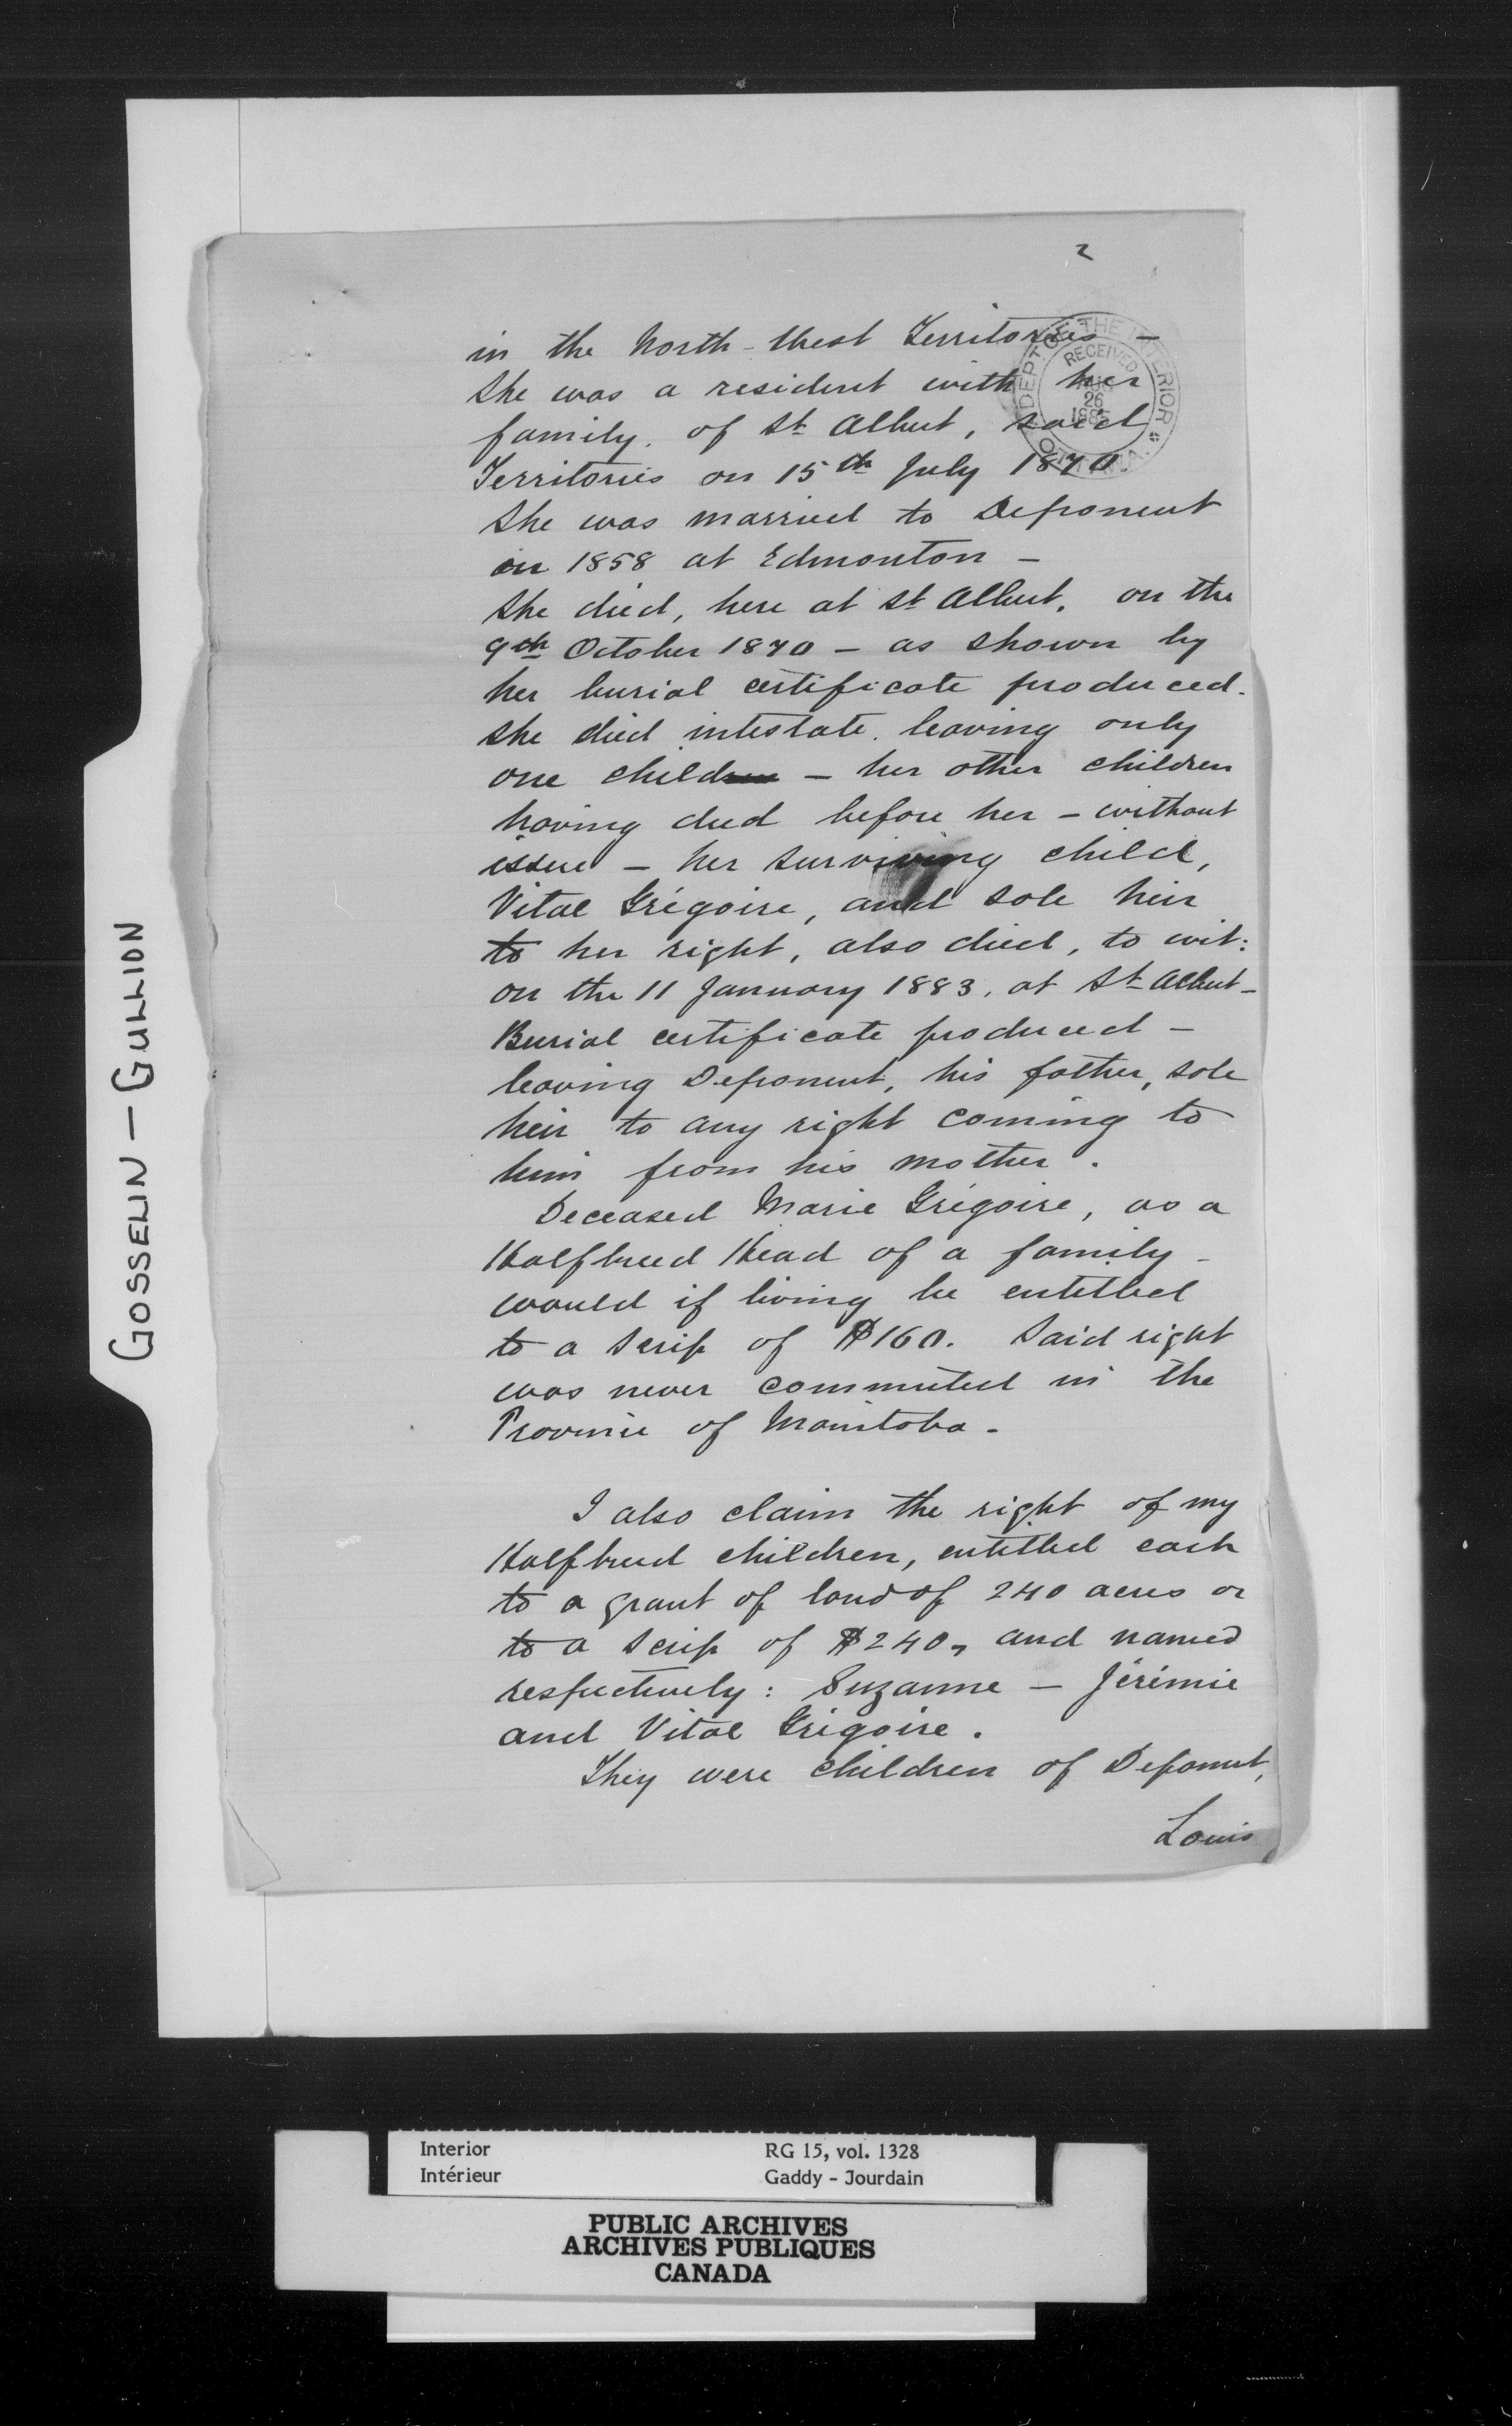 2
in the North-West Territories —
She was a resident with her
family. of St Albert, said
Territories on 15th July 1870.
She was married to Deponent
in 1858 at Edmonton —
She died, here at St Albert, on the
9th October 1870 — as shown by
her burial certificate produced.
She died intestate. leaving only
one children — her other children
having died before her — without
issue — her surviving child,
Vital Grégoire, and sole heir
to her right, also died, to wit:
on the 11 January 1883, at St Albert —
Burial certificate produced —
leaving Deponent, his father, sole
heir to any right coming to
him from his mother.
Deceased Marie Grégoire, as a
Halfbreed Head of a family —
would if living be entitled
to a scrip of $160. Said right
was never commuted in the
Province of Manitoba —
I also claim the right of my
Halfbreed children, entitled each
to a grant of land of 240 acres or
to a scrip of $240, and named
respectively: Suzanne — Jérémie
and Vital Grégoire.
They were children of Deponent,
Louis
DEPT OF THE INTERIOR
RECEIVED
AUG
26
1885
OTTAWA.
GOSSELIN — GULLION
Interior RG 15, vol. 1328
Intérieur Gaddy - Jourdain
PUBLIC ARCHIVES
ARCHIVES PUBLIQUES
CANADA